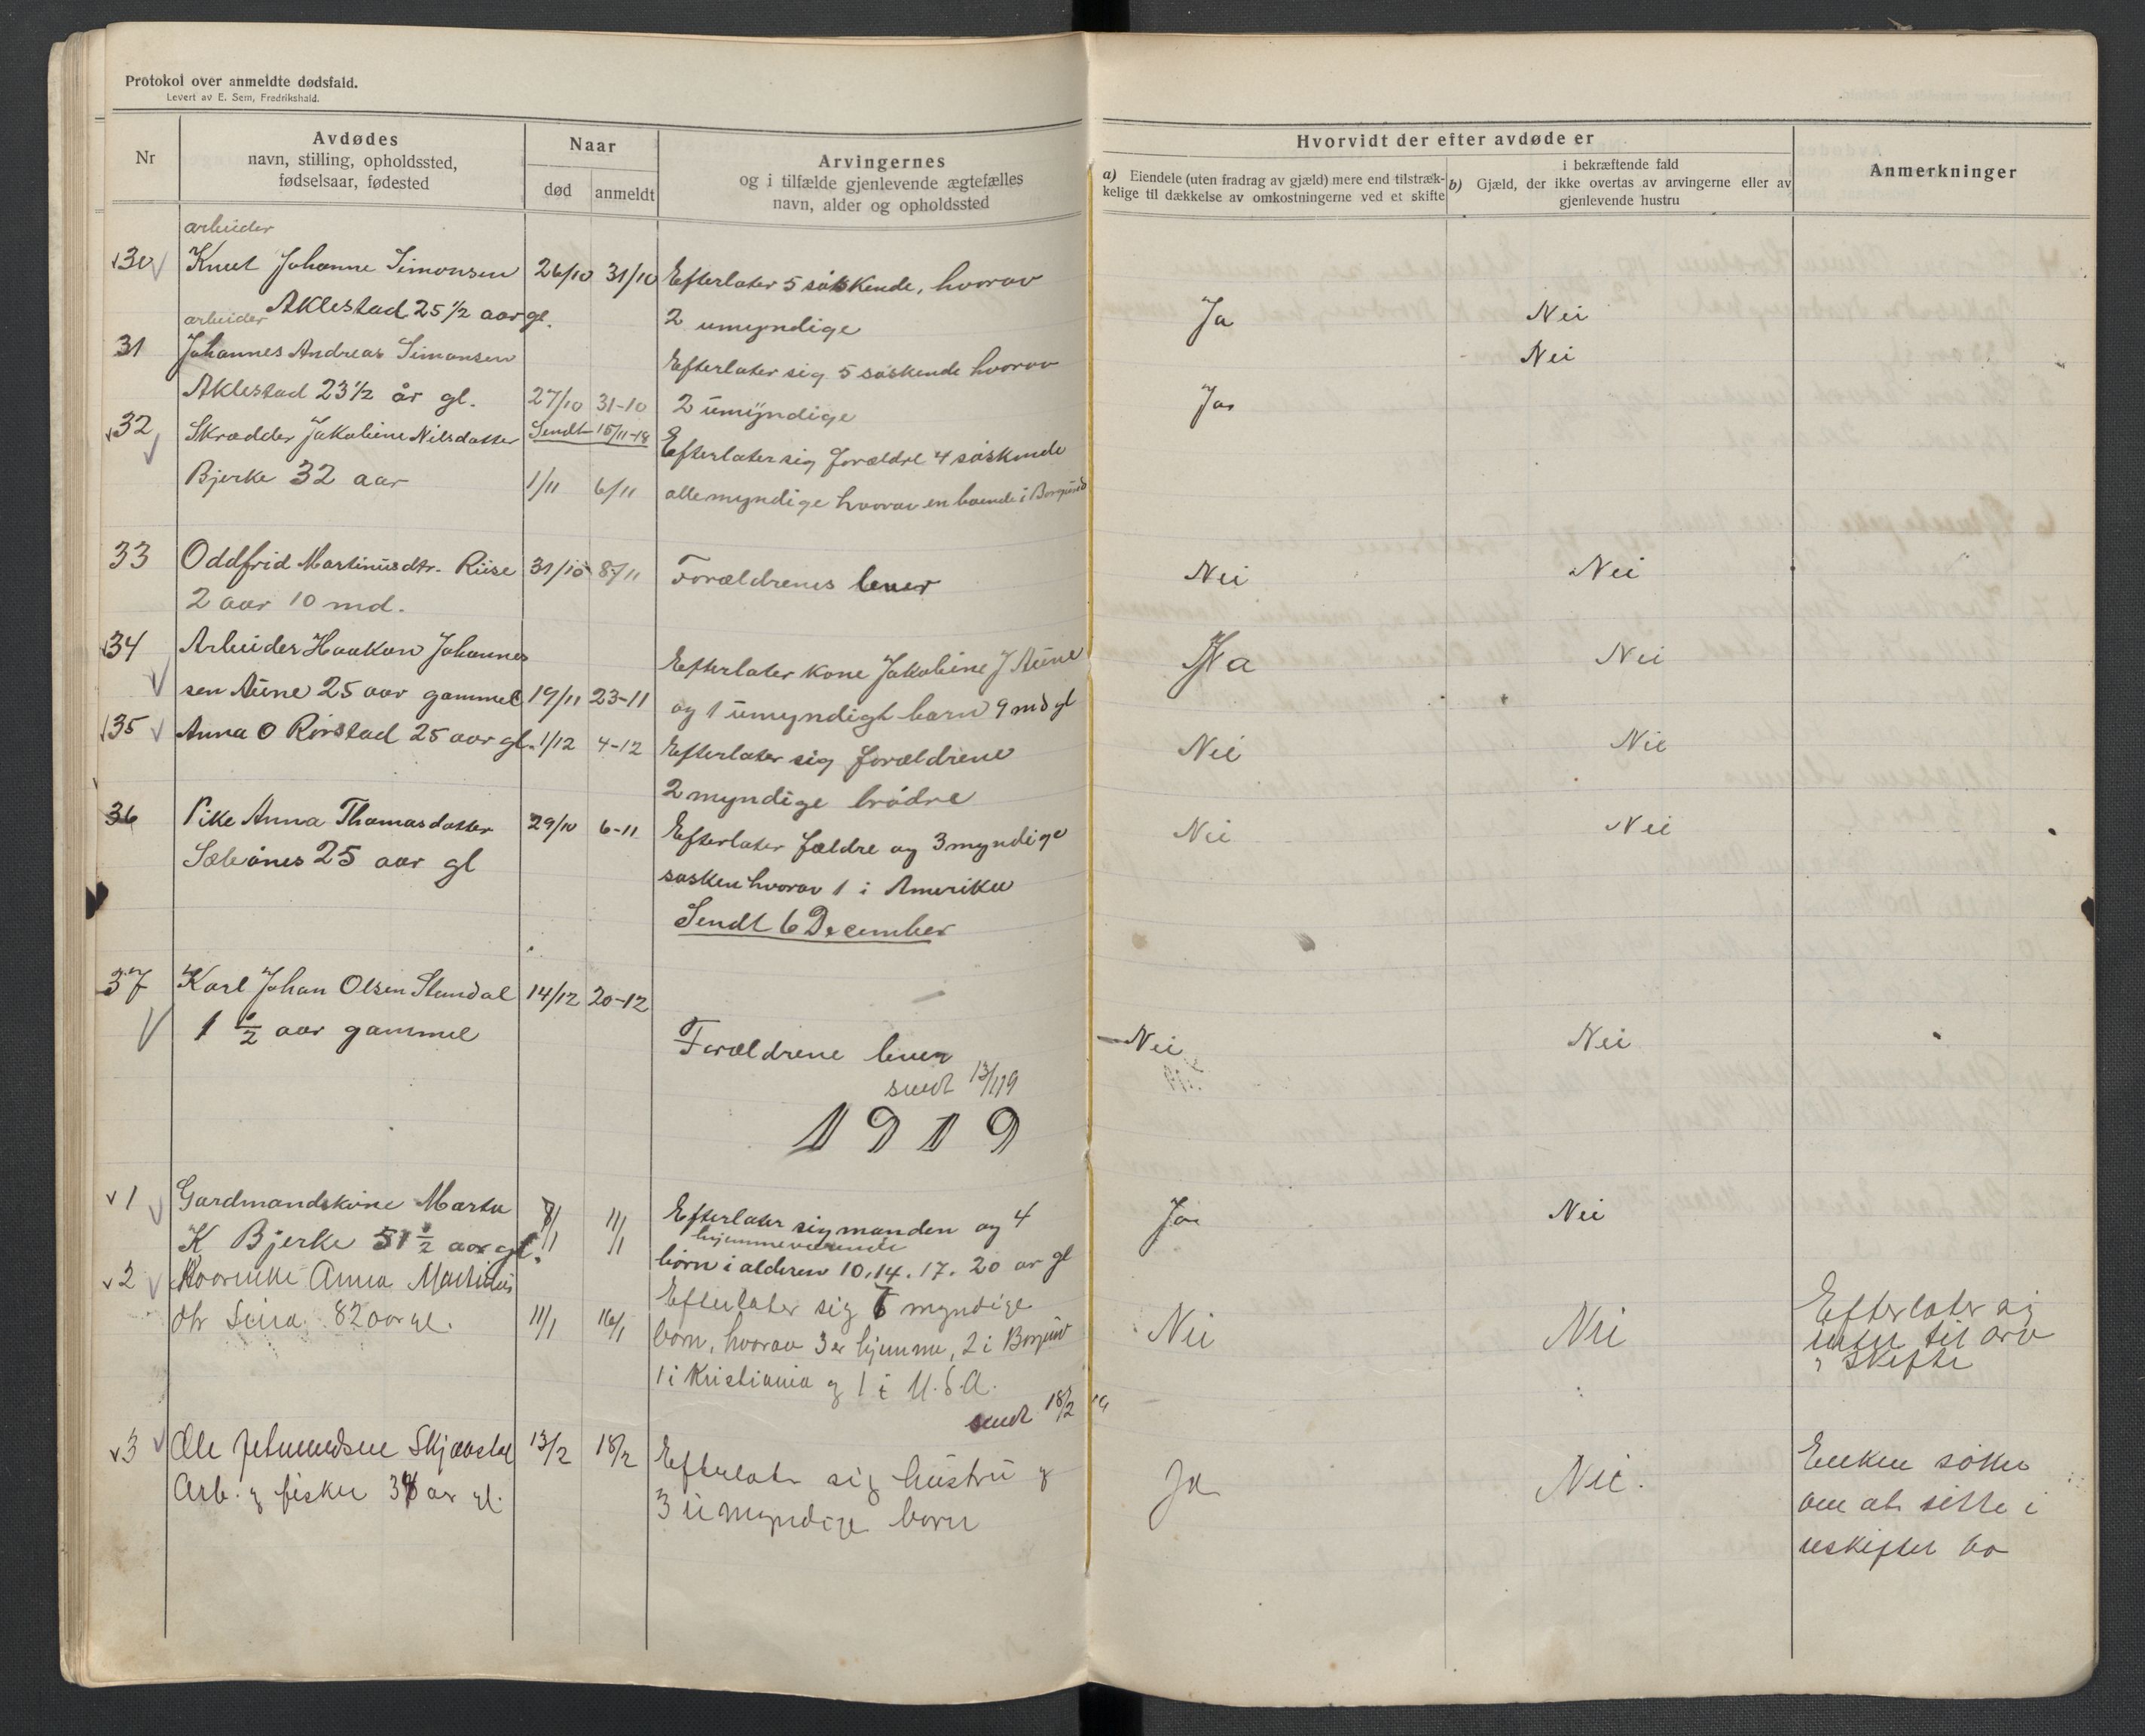 Protokol over anmeldte dødsfald.
Levert av E. Sem, Fredrikshald.
Nr
Avdødes
navn, stilling, opholdssted,
fødselsaar, fødested
Naar
død
anmeldt
Arvingernes
og i tilfælde gjenlevende ægtefælles
navn, alder og opholdssted
Hvorvidt der efter avdøde er
a) Eiendele (uten fradrag av gjæld) mere end tilstræk-
kelige til dækkelse av omkostningerne ved et skifte
i bekræftende fald
b) Gjæld, der ikke overtas av arvingerne eller av
gjenlevende hustru
Anmerkninger
arbeider
30 Knut Johanne Simonsen 26/10 31/10 Efterlater 5 søskende, hvorav
Aklestad 25 1/2 aar gl. 2 umyndige Ja Nei
arbeider
31 Johannes Andreas Simonsen Efterlater sig 5 søskende hvorav Nei
Aklestad 23 1/2 år gl. 27/10 31-10 2 umyndige Ja
32 Skrædder Jakobine Nilsdatter Sendt 15/11-18 Efterlater sig forældre 4 søskende
Bjerke 32 aar 1/11 6/11 alle myndige hvorav en boende i Borgund
33 Oddfrid Martinusdtr. Riise 31/10 8/11 Forældrenes lever Nei Nei
2 aar 10 md.
34 Arbeider Haakon Johannes Efterlater kone Jakobine J Aune Ja Nei
sen Aune 25 aar gammel 19/11 23-11 og 1 umyndigt barn 9 md gl
35 Anna O Rørstad 25 aar gl. 1/12 4-12 Efterlater sig forældrene Nei Nei
2 myndige brødre
36 Pike Anna Thomasdatter 29/10 6-11 Efterlater fældre og 3 myndige Nei Nei
Sæbønes 25 aar gl søsken hvorav 1 i Amerika
Sendt 6 December
37 Karl Johan Olsen Stendal 14/12 20-12
1 1/2 aar gammel Forældrene lever Nei Nei
sendt 13/1 19
1919
1 Gardmandskone Marta 8/1 11/1 Efterlater sig manden og 4 Ja Nei
hjemmeværende
K Bjerke 51 1/2 aar gl. børn i alderen 10. 14. 17. 20 ar gl
2 Anna Martinus Efterlater sig 7 myndige
dtr 82 aar gl. 11/1 16/1 børn, hvorav 3 er hjemme, 2 i Borgund Nei Nei
1 i Kristiania og 1 i U.S.A.
Efterlater sig
intet til arv
og Skifte
sendt 18/2 19
3 Ole 13/2 18/2 Efterlater sig hustru og Ja Nei.
Arb. og fisker ar gl. 3 umyndige born
Enken søker
om at sitte i
uskiftet bo